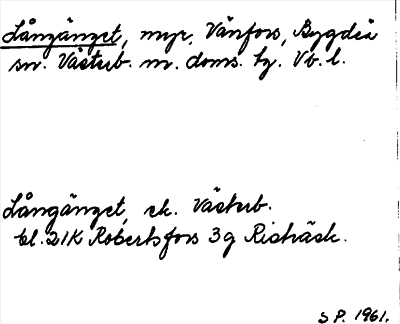 Långänget, myr, Vänfors, Bygdeå
sn. Västerb. n. doms. tg. Vb. l.
Långänget, ek. Västerb.
bl. 21K Robertsfors 3g Risträsk.
S P. 1961.